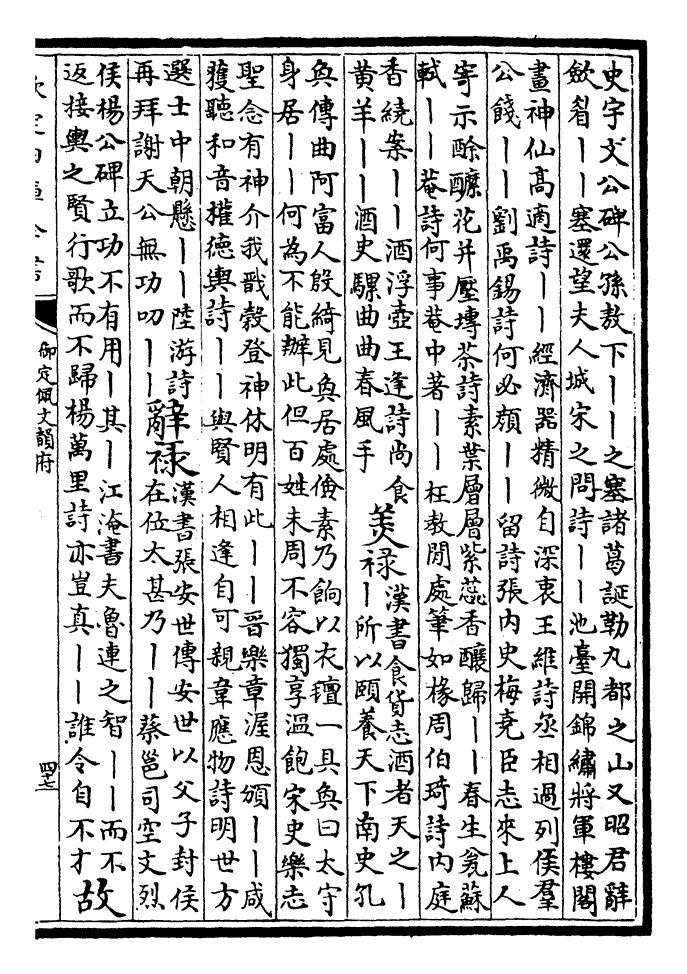 史宇文公碑公孫敖下｜｜之塞諸葛誕勒九都之山又昭君辭
斂眉｜｜塞還望夫人城宋之問詩｜｜池臺開錦繡將軍樓閣
畫神仙高適詩｜｜經濟器精微自深衷王維詩丞相過列侯羣
公餞｜｜劉禹錫詩何必頻｜｜留詩張内史梅堯臣志來上人
寄示酴醾花并壓塼茶詩素葉層層紫蕊香釀歸｜｜春生瓮蘇
軾｜｜菴詩何事菴中著｜｜枉教閒處筆如椽周伯琦詩内庭
香繞案｜｜酒浮壺王逢詩尚食
黄羊｜｜酒史騾曲曲春風手
羙禄
漢書食貨志酒者天之｜
｜所以頤養天下南史孔
奐傳曲阿富人殷綺見奐居處儉素乃餉以衣氊一具奐曰太守
身居｜｜何為不能辦此但百姓未周不容獨享溫飽宋史樂志
聖念有神介我戩穀登神休明有此｜｜晉樂章渥恩頒｜｜咸
獲聽和音權德輿詩｜｜與賢人相逢自可親韋應物詩明世方
選士中朝懸｜｜陸游詩
再拜謝天公無功叨｜｜
辭禄
漢書張安世傳安世以父子封侯
在位太甚乃｜｜蔡邕司空文烈
侯楊公碑立功不有用｜其｜江淹書夫魯連之智｜｜而不
返接輿之賢行歌而不歸楊萬里詩亦豈真｜｜誰令自不才
故
御定佩文韻府
四十七